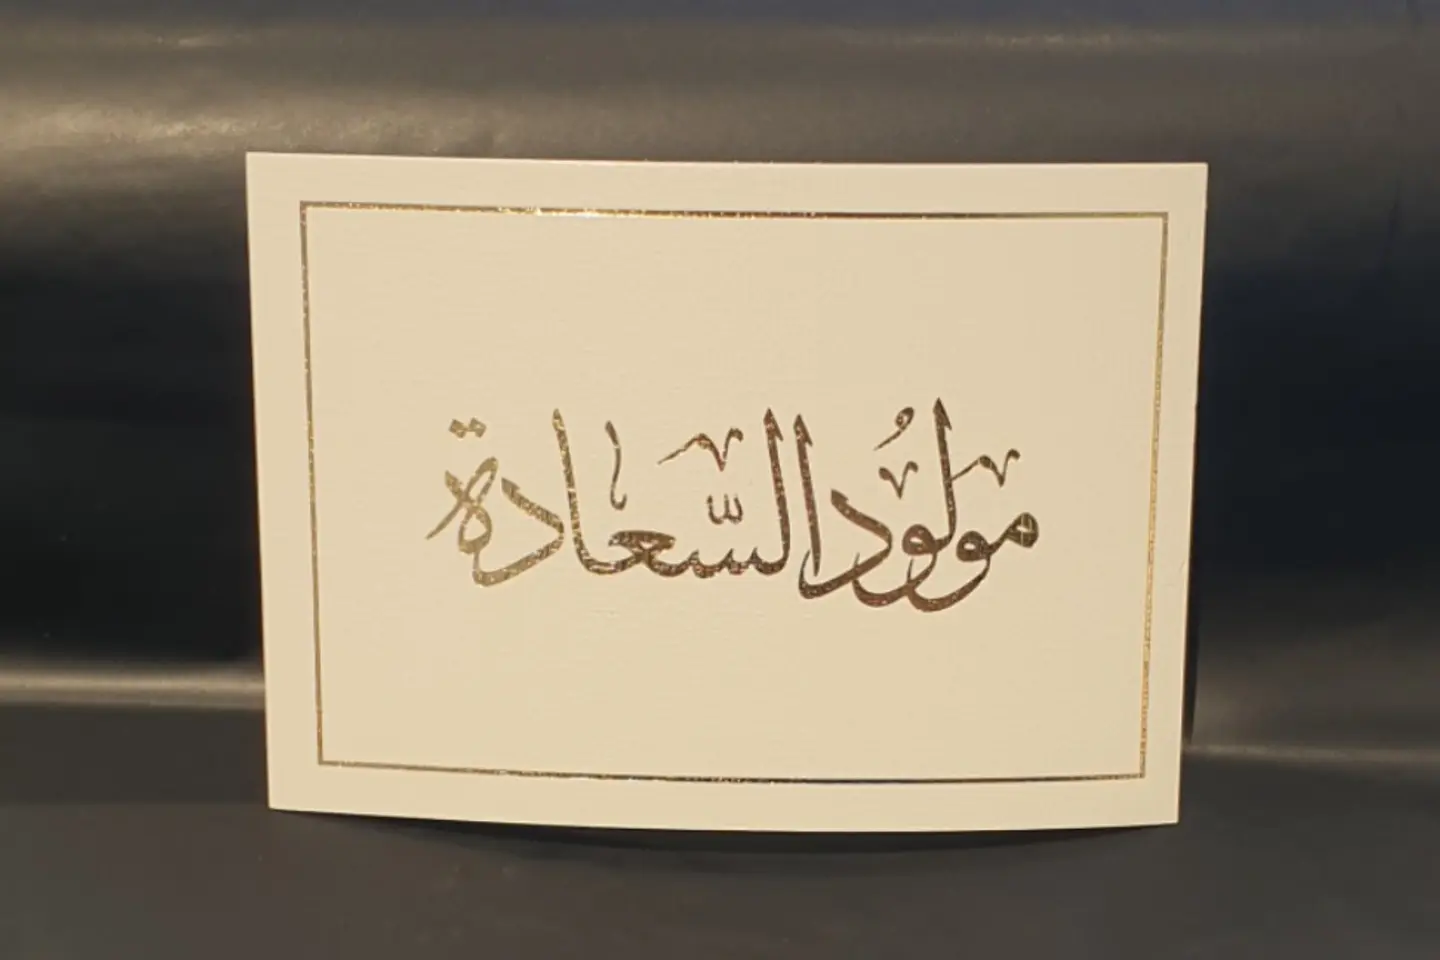 مولودُ السّعادة